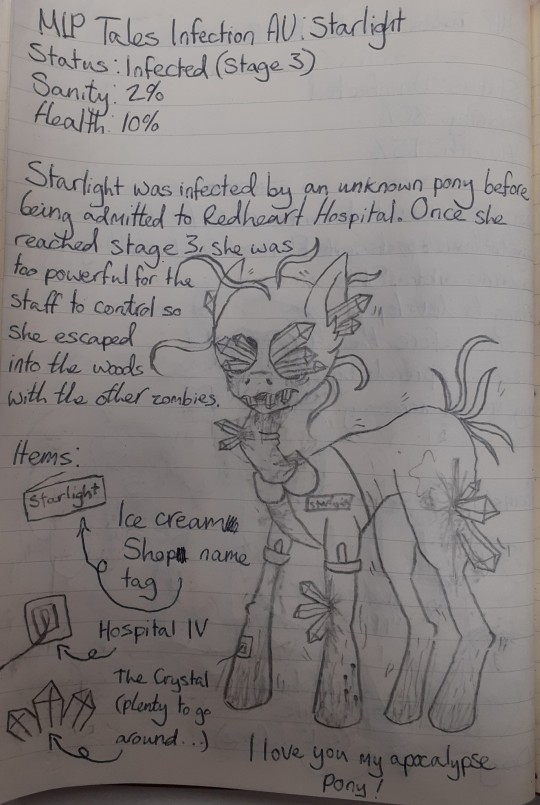 MLP Tales Infection AU: Starlight
Status: Infected (Stage 3)
Sanity: 2%
Health: 10%
Starlight was infected by an unknown pony before
being admitted to Redheart Hospital. Once she
reached stage 3, she was
too powerful for the
staff to control so
she escaped
into the woods
with the other zombies.
Items:
Starlight
Ice cream
Shop name
tag
Hospital IV
The Crystal
(plenty to go
around...)
Starlight
I love you my apocalypse
Pony!